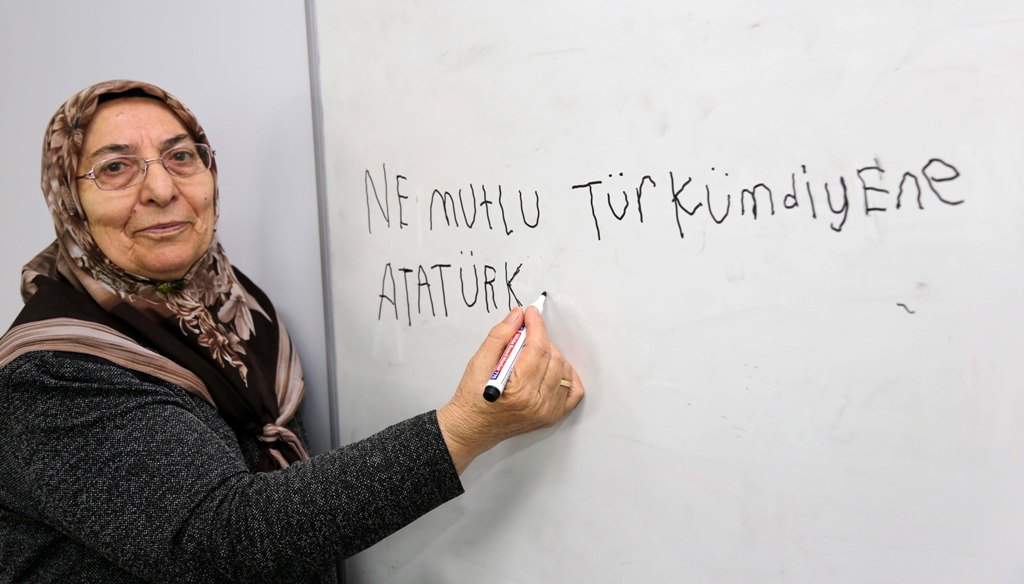 NE mutlu Türkümdiyene
ATATÜRK